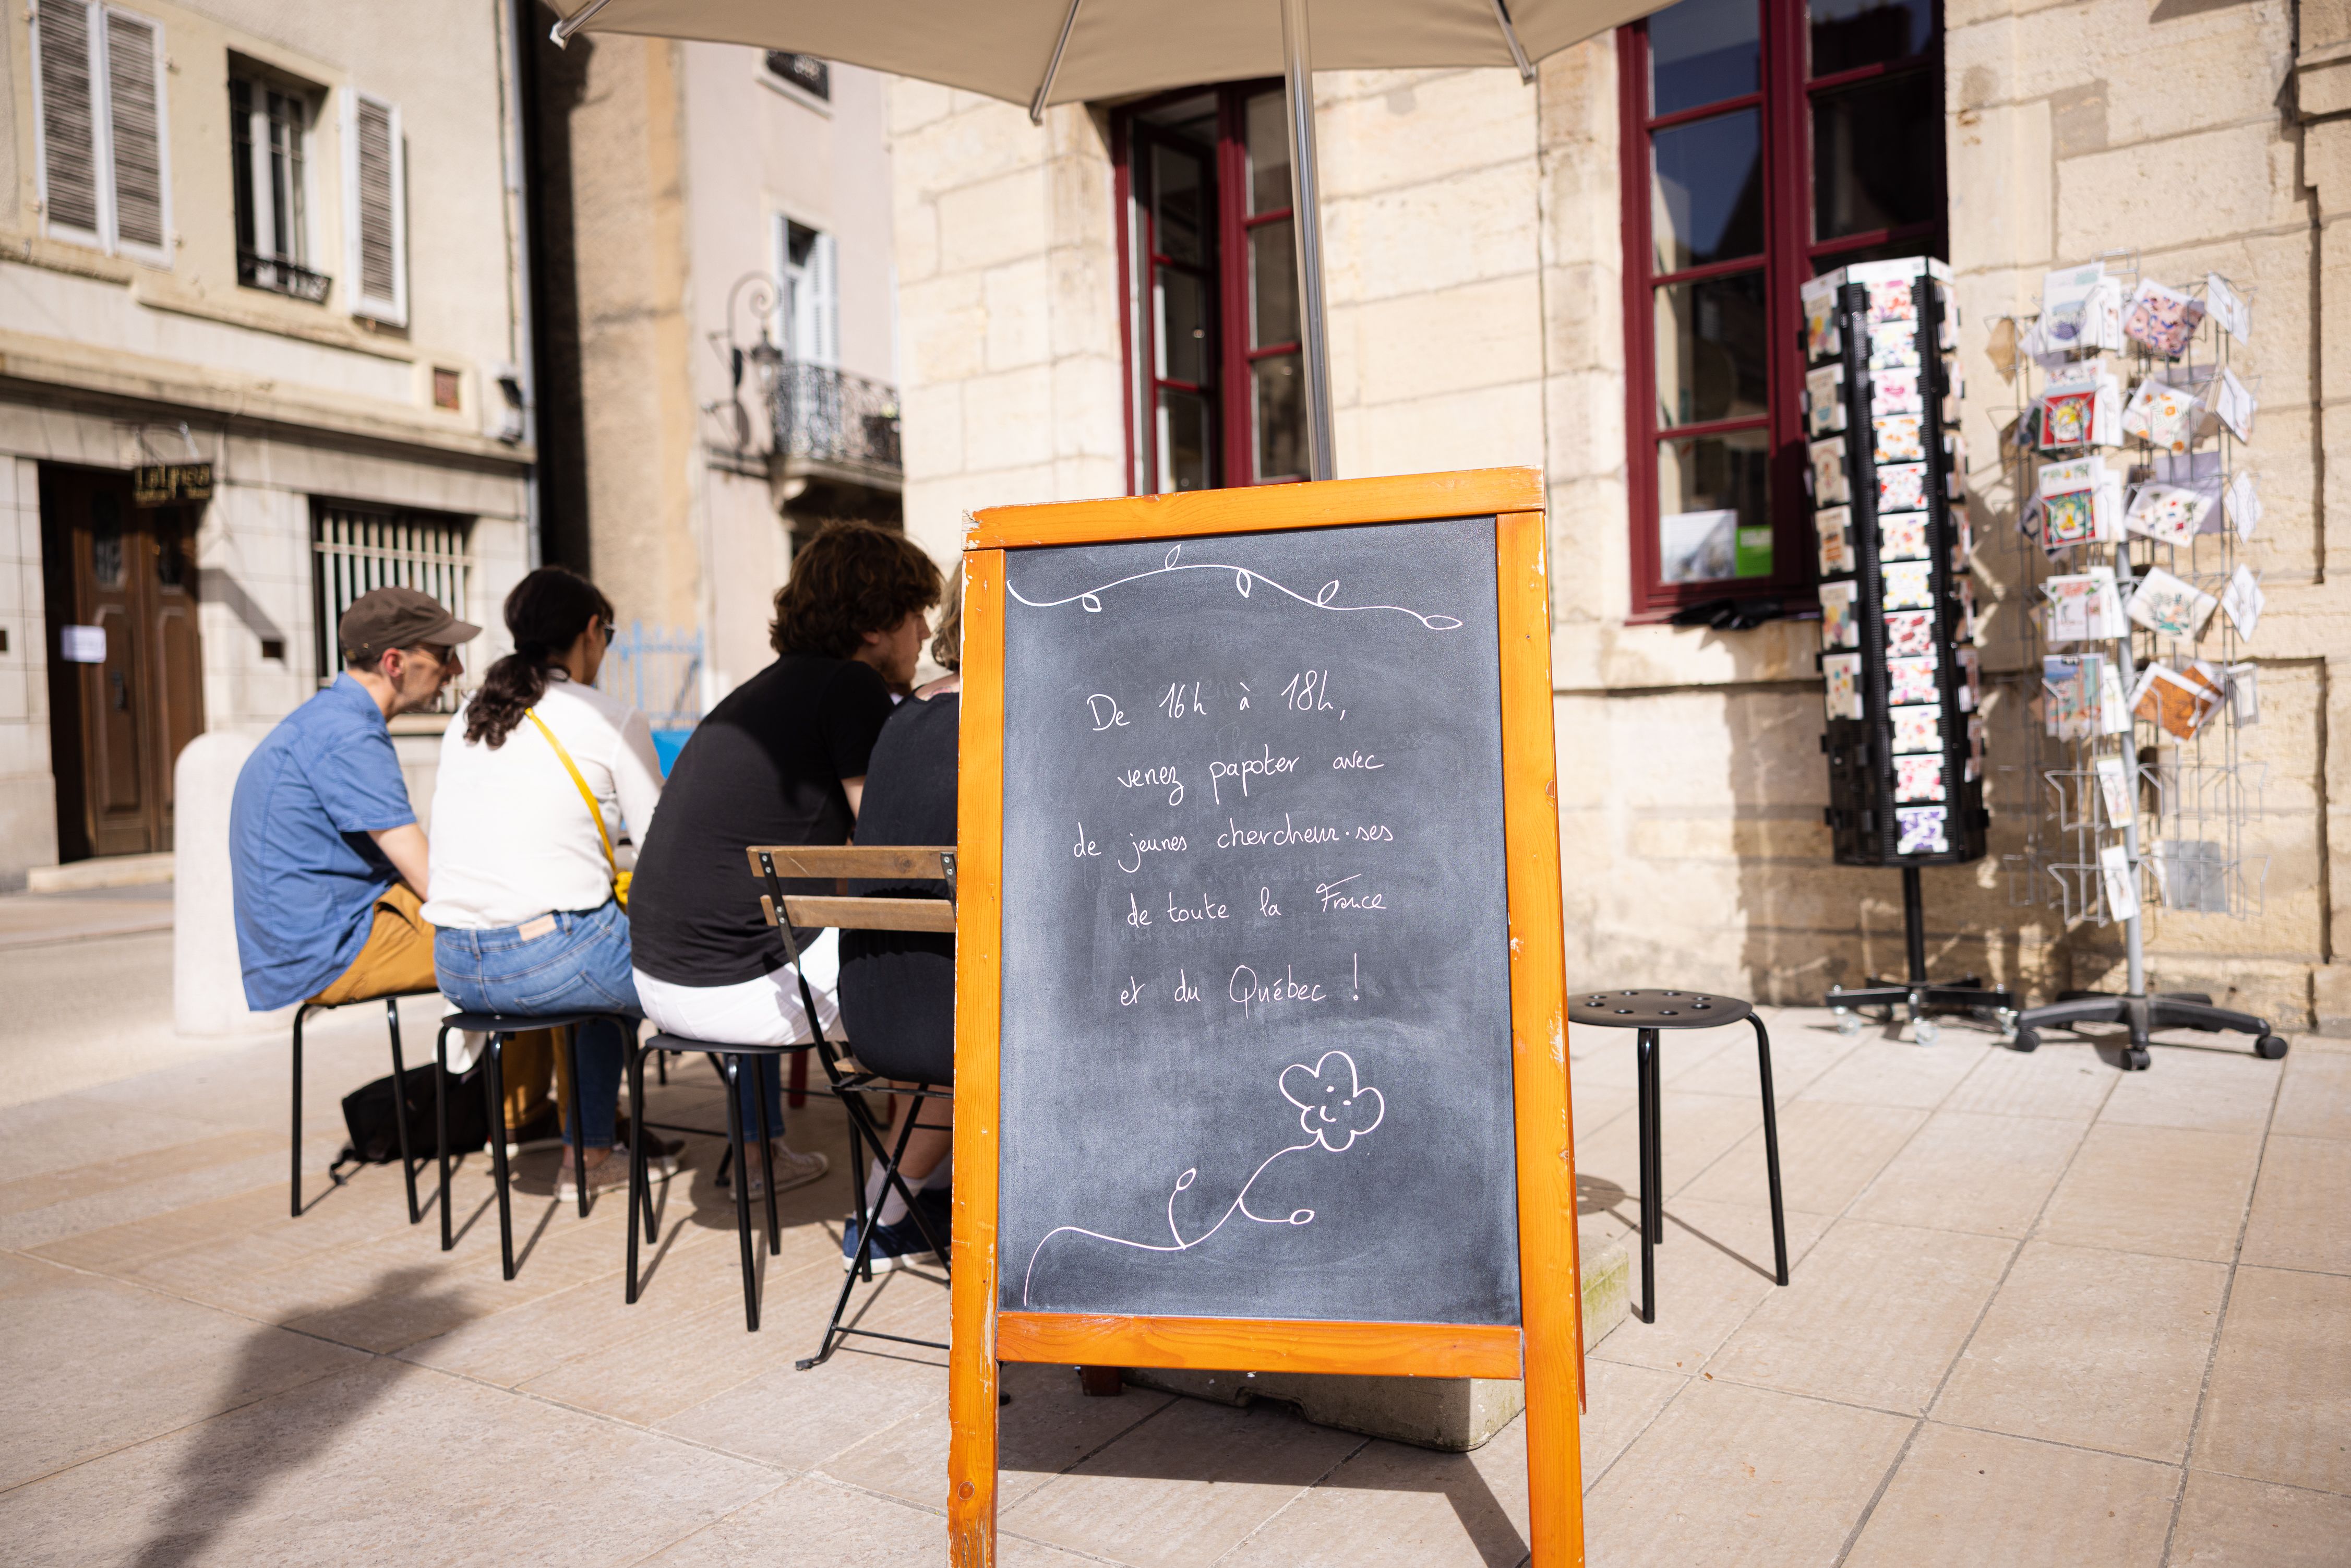 De 16h à 18h,
venez papoter avec
de jeunes chercheur·ses
de toute la France
et du Québec !